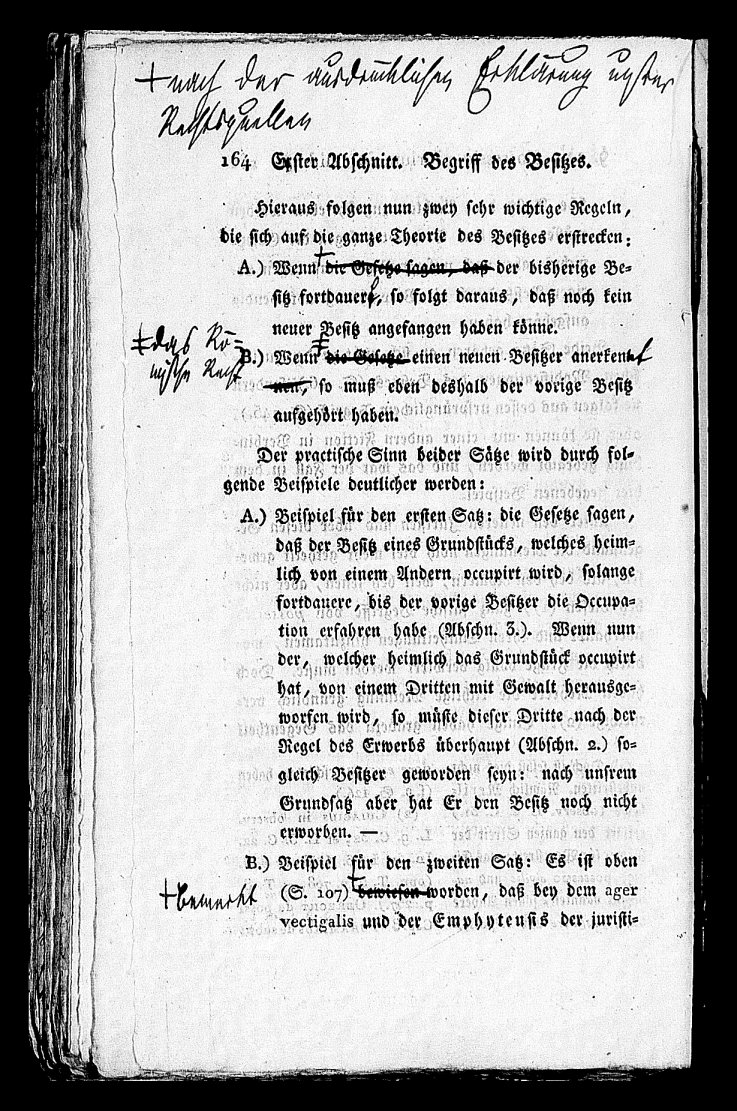 + nach der ausdrücklichen Erklärung unsrer
Rechtsquellen
164 Erster Abschnitt. Begriff des Besitzes.
Hieraus folgen nun zwey sehr wichtige Regeln,
die sich auf die ganze Theorie des Besitzes erstrecken:
A.) Wenn + die Gesetze sagen, daß der bisherige Be-
sitz fortdauere, so folgt daraus, daß noch kein
neuer Besitz angefangen haben könne.
‡ das Rö-
mische Recht
B.) Wenn ‡ die Gesetze einen neuen Besitzer anerkennt
nen, so muß eben deshalb der vorige Besitz
aufgehört haben.
Der practische Sinn beider Sätze wird durch fol-
gende Beispiele deutlicher werden:
A.) Beispiel für den ersten Satz: die Gesetze sagen,
daß der Besitz eines Grundstücks, welches heim-
lich von einem Andern occupirt wird, solange
fortdauere, bis der vorige Besitzer die Occupa-
tion erfahren habe (Abschn. 3.). Wenn nun
der, welcher heimlich das Grundstück occupirt
hat, von einem Dritten mit Gewalt herausge-
worfen wird, so müßte dieser Dritte nach der
Regel des Erwerbs überhaupt (Abschn. 2.) so-
gleich Besitzer geworden seyn: nach unsrem
Grundsatz aber hat Er den Besitz noch nicht
erworben. —
B.) Beispiel für den zweiten Satz: Es ist oben
+ bemerkt
(S. 107) + bewiesen worden, daß bey dem ager
vectigalis und der Emphyteusis der juristi-